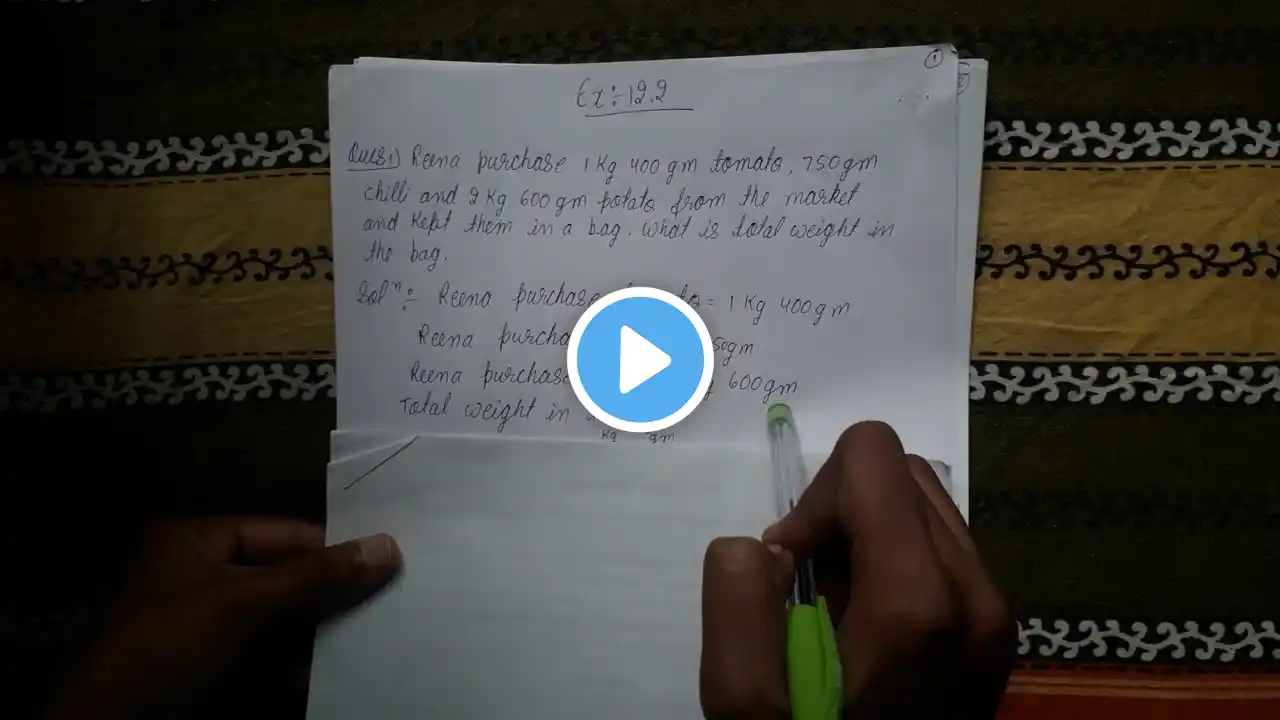 ①
Ex÷12.2
Ques1) Reena purchase 1 Kg 400 gm tomato, 750 gm
chilli and 2 Kg 600 gm potato from the market
and Kept them in a bag. What is total weight in
the bag.
Solⁿ÷ Reena purchase = 1 Kg 400 gm
Reena purchase 50gm
Reena purchase 600 gm
Total weight in
Kg gm